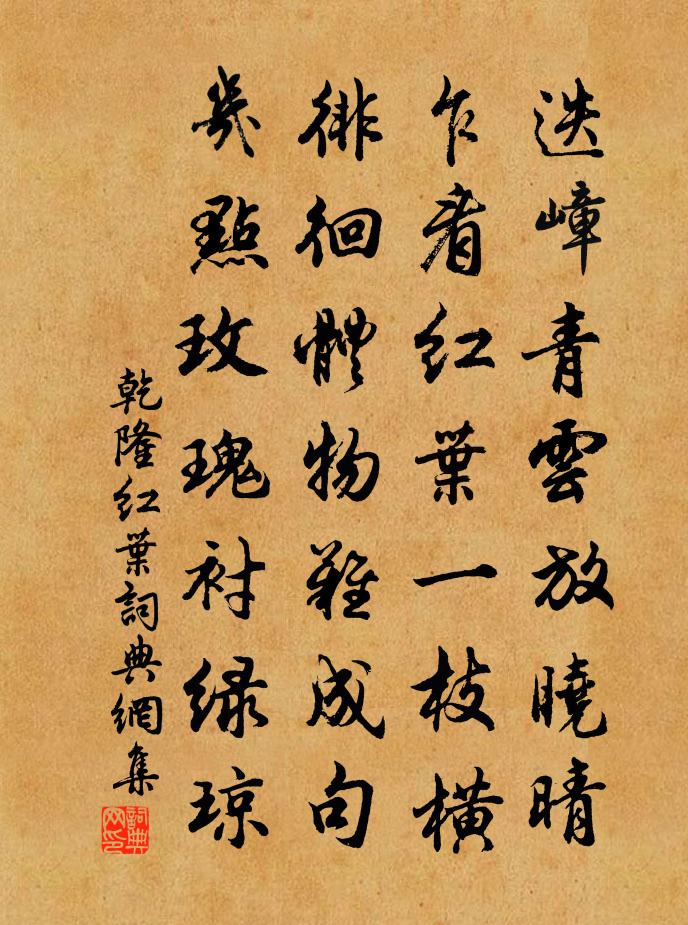 迭嶂青雲放曉晴
乍看紅葉一枝橫
徘徊體物難成句
幾點玫瑰襯綠瓊
乾隆紅葉詞典網集
詞典网印